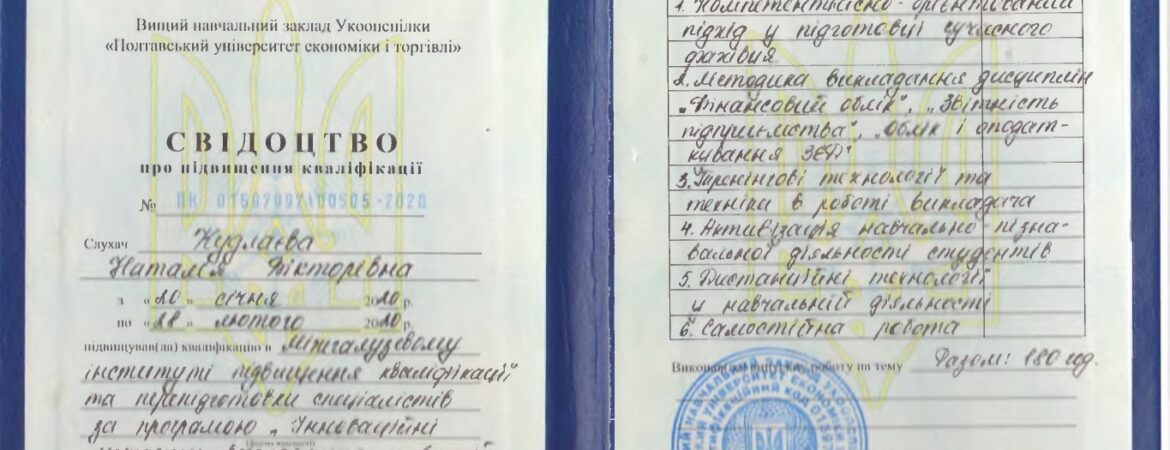 Вищий навчальний заклад Укоопспілки
«Полтавський університет економіки і торгівлі»
СВІДОЦТВО
про підвищення кваліфікації
№ ПК 01597997\00505-2020
Слухач Кудлаєва
Наталія Вікторівна
з «20» січня 2020 р.
по «28» лютого 2020 р.
підвищував(ла) кваліфікацію в Міжгалузевому
інституті підвищення кваліфікації
та перепідготовки спеціалістів
за програмою „Інноваційні
1. Компетентнісно-орієнтований
підхід у підготовці сучасного
фахівця
2. Методика викладання дисциплін
„Фінансовий облік", „Звітність
підприємства", „Облік і оподат-
кування ЗЕД"
3. Тренінгові технології та
техніки в роботі викладача
4. Активізація навчально-пізна-
вальної діяльності студентів
5. Дистанційні технології
у навчальній діяльності
6. Самостійна робота
Разом: 180 год.
Виконав випускну роботу на тему